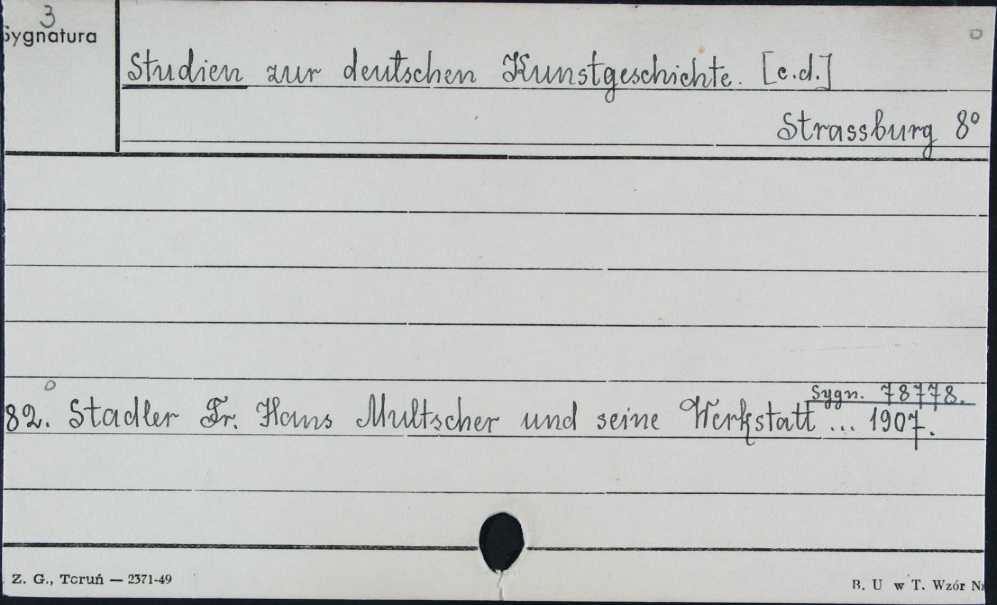 3
Sygnatura
Studien zur deutschen Kunstgeschichte. [c.d.]
Strassburg 8°
Sygn. 78778.
82. Stadler Fr. Hans Multscher und seine Werkstatt ... 1907.
Z. G., Toruń — 2371-49
B. U w T. Wzór Nr